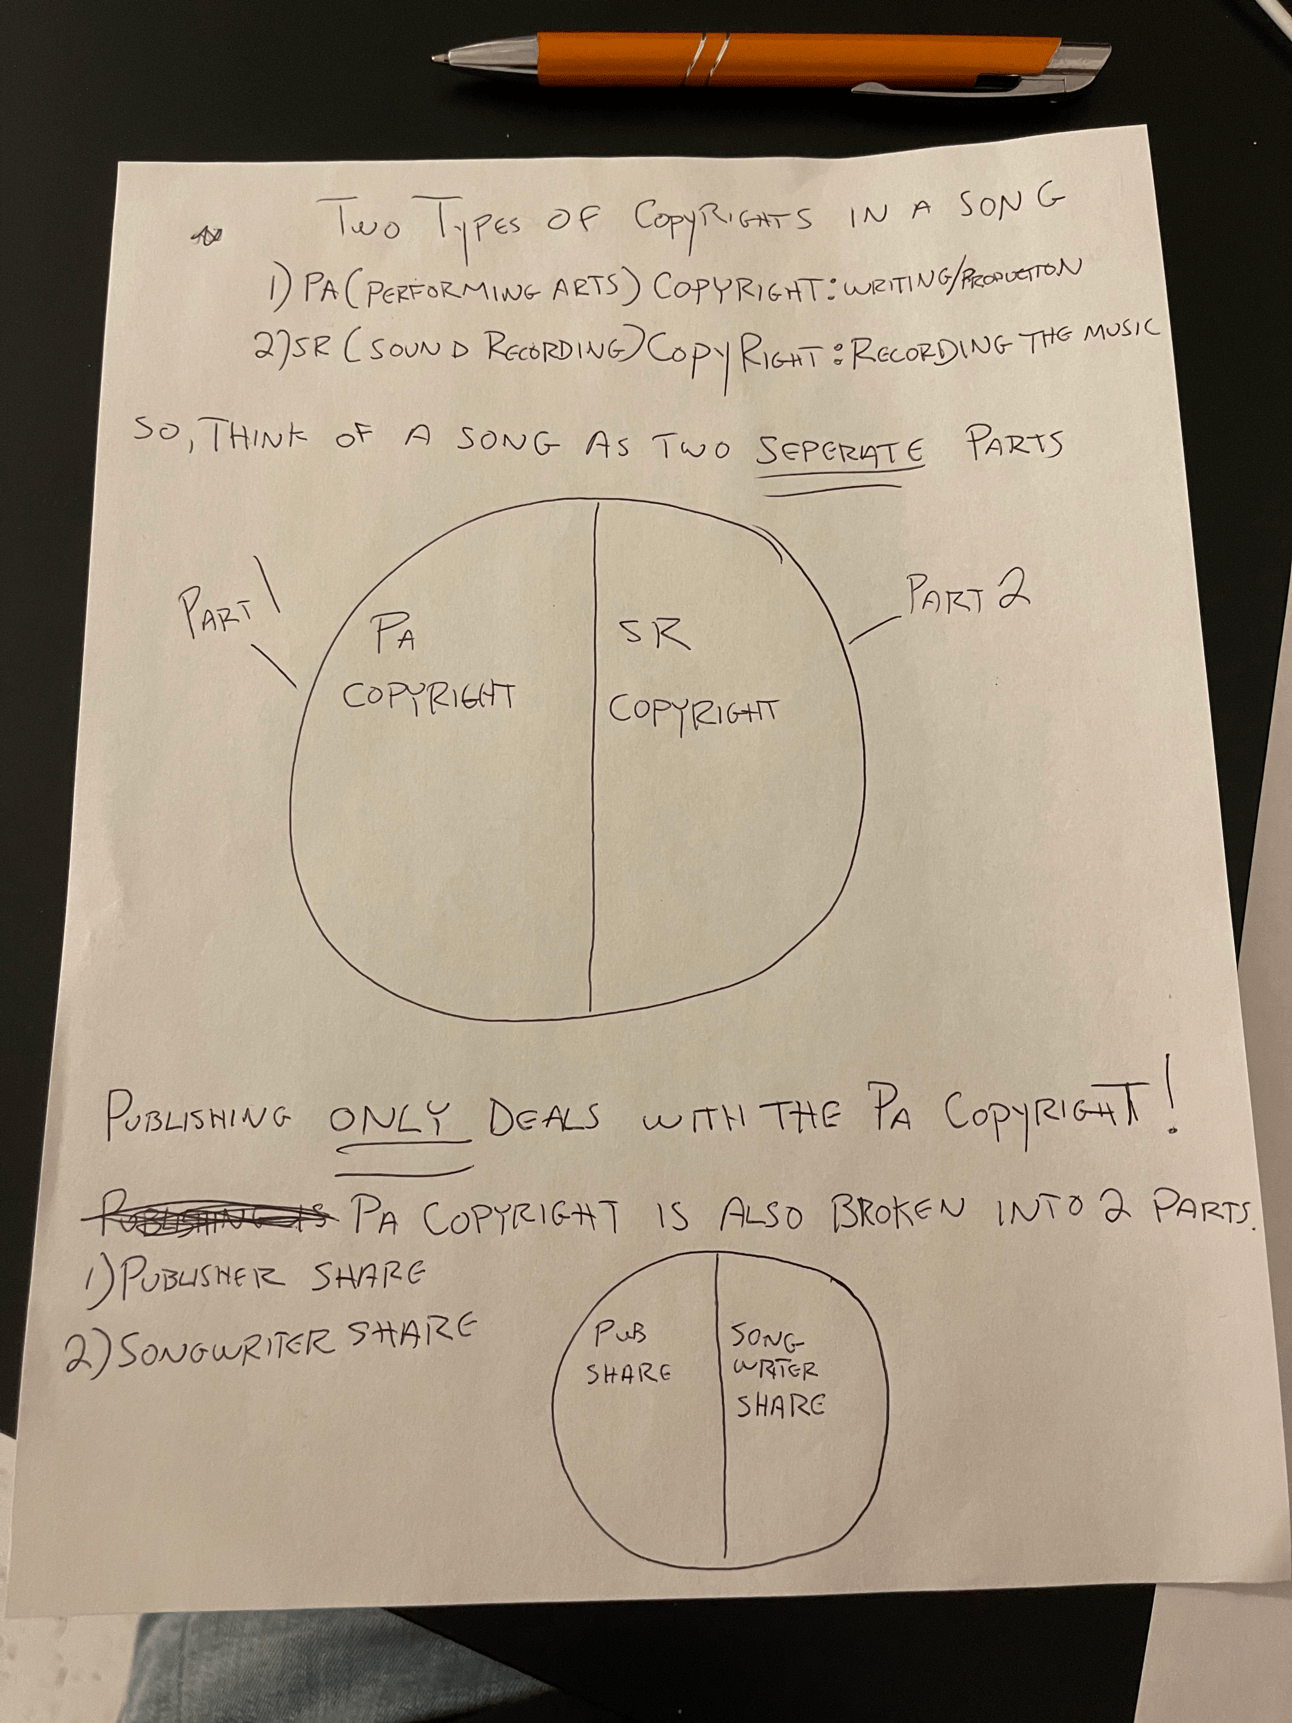 Two Types of Copyrights in a Song
1) PA (Performing Arts) Copyright: Writing/Production
2) SR (Sound Recording) Copyright: Recording the Music
So, Think of a Song as Two Seperate Parts
Part 1
Part 2
PA
Copyright
SR
Copyright
Publishing ONLY Deals with the PA Copyright!
Publishing is PA Copyright is also broken into 2 parts.
1) Publisher Share
2) Songwriter Share
Pub
Share
Song
Writer
Share